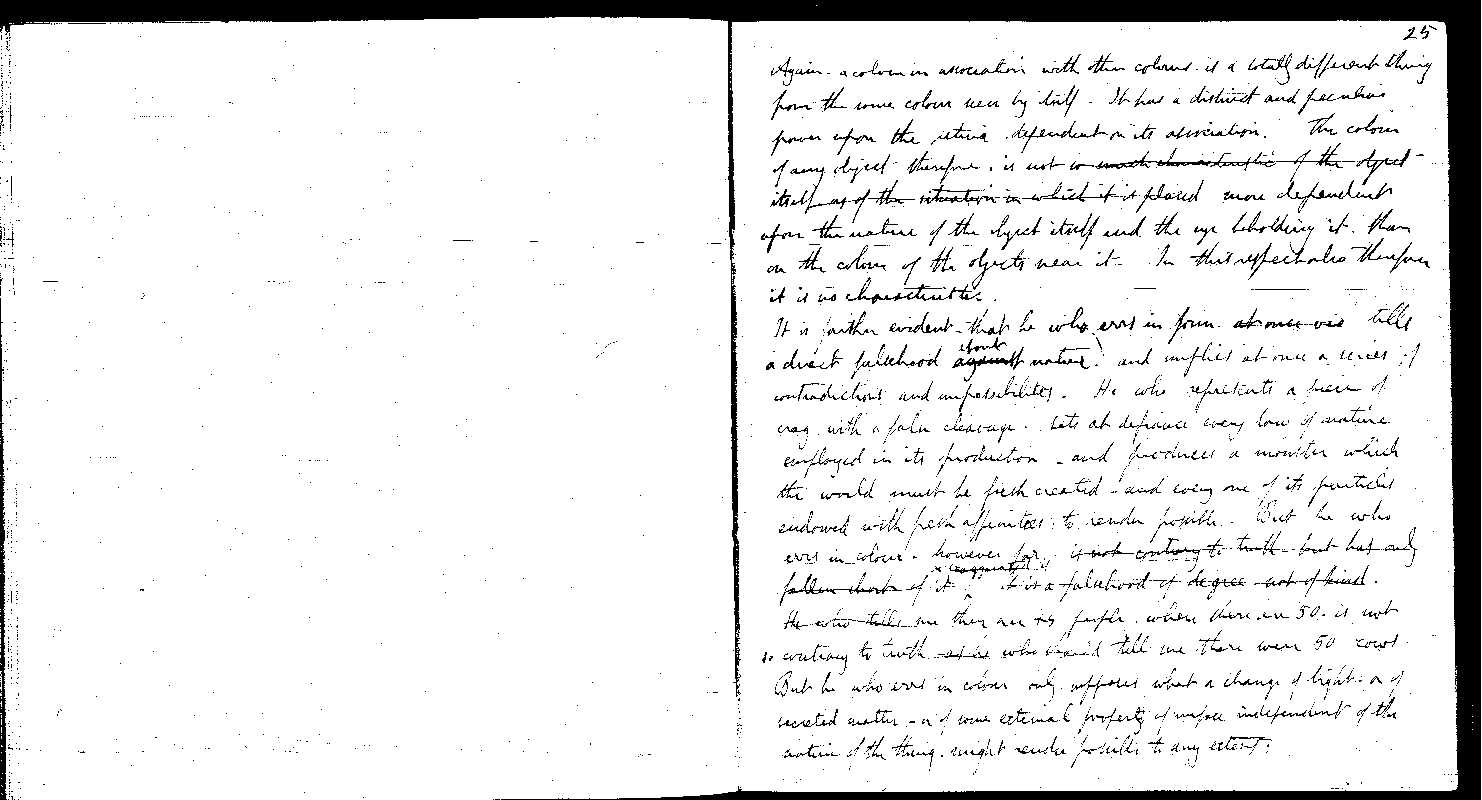 25
Again - a colour in association with other colours is a totally different thing
from the same colour seen by itself - It has a distinct and peculiar
power upon the retina dependent on its association. The colour
of any object therefore, is not so much characteristic of the object
itself as of the situation in which it is placed more dependent
upon the nature of the object itself and the eye beholding it. than
on the colour of the objects near it - In this respect also therefore
it is no characteristic.
It is farther evident - that he who errs in form at once tells
a direct falsehood about against nature, and implies at once a series of
contradictions and impossibilities. He who represents a piece of
crag with a false cleavage. sets at defiance every law of nature
employed in its production - and produces a monster which
the world must be fresh created - and every one of its particles
endowed with fresh affinities, to render possible - But he who
errs in colour - however far, is not contrary to truth - but has only
fallen short of it exaggerated it is a falsehood of degree not of kind.
He who tells me there are people where there are 50 - is not
so contrary to truth as he who should tell me there were 50 cows.
But he who errs in colour only supposes what a change of light - or of
secreted matter - or of some external property of surface independent of the
nature of the thing. might render possible to any extent: